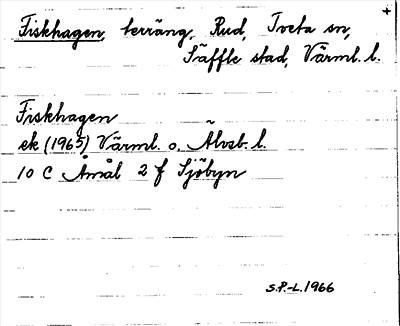 Fiskhagen, terräng, Rud, Tveta sn,
Säffle stad, Värml. l.
Fiskhagen
ek (1965) Värml. o. Älvsb. l.
10 C Åmål 2 f Sjöbyn
S.P.-L. 1966